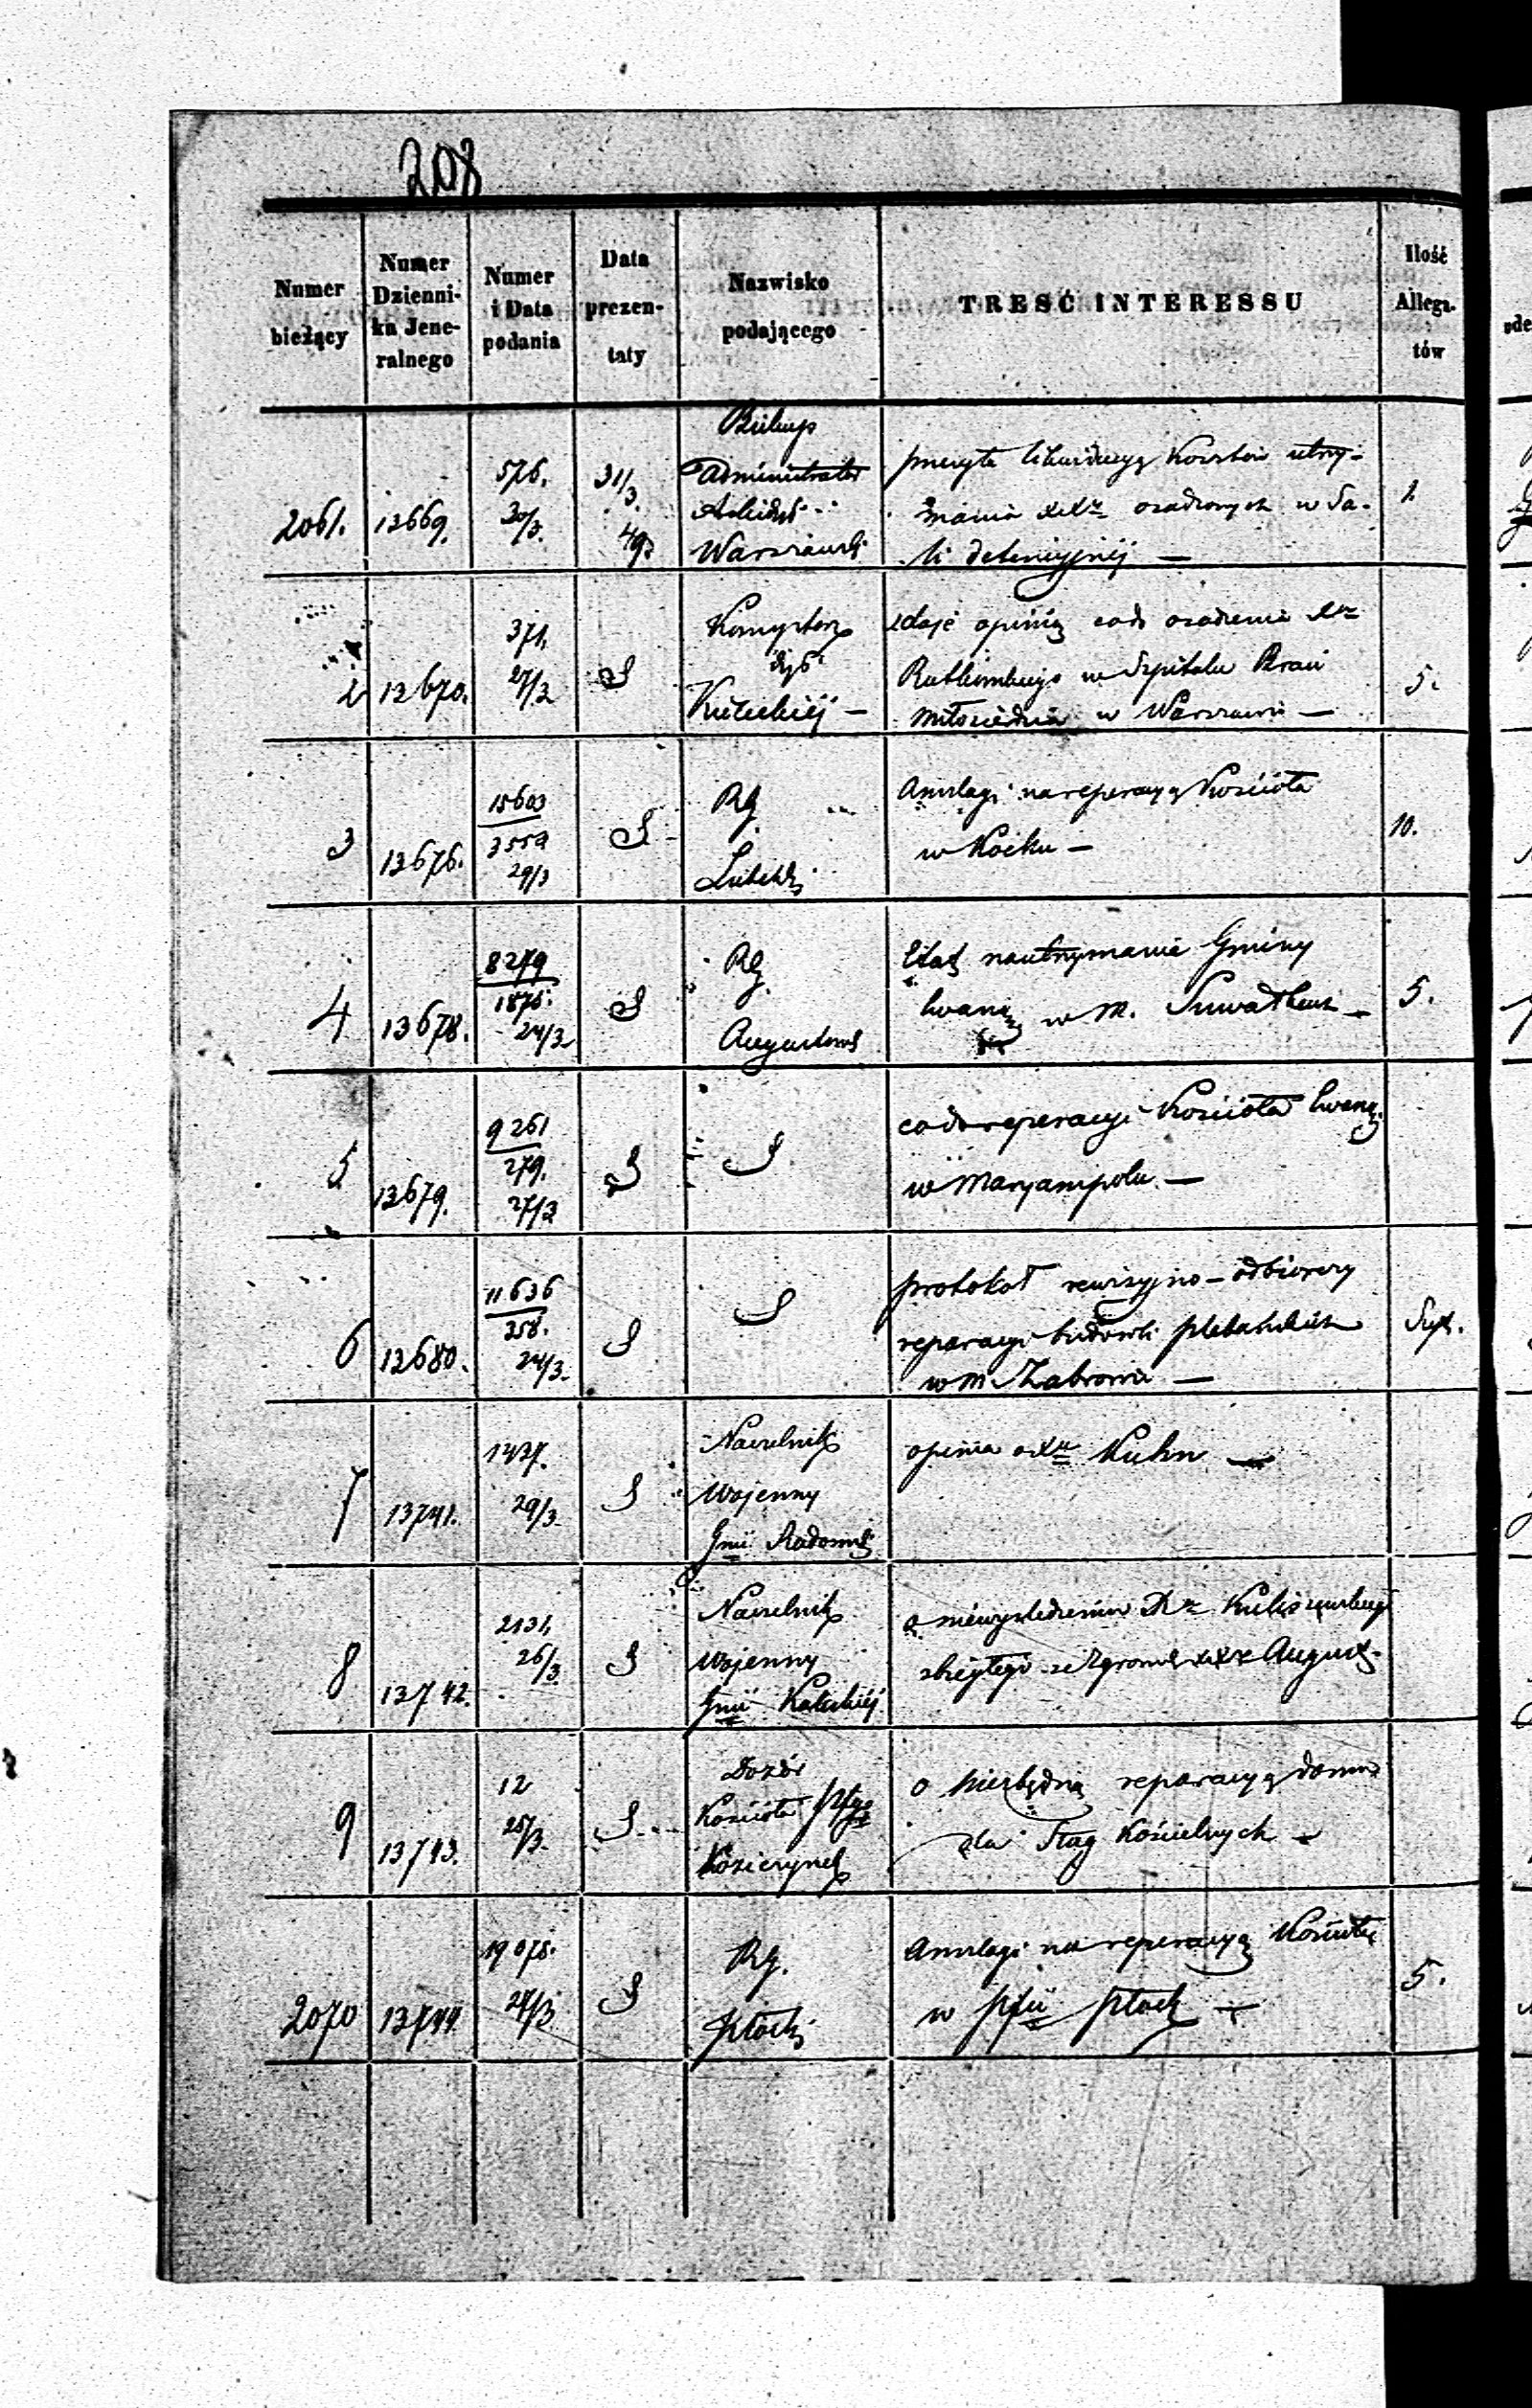 208
Numer bieżący
Numer Dzienni- ka Jene- ralnego
Numer i Data podania
Data prezen- taty
Nazwisko podającego
TREŚĆ INTERESSU
Ilość Allega- tów
2061. 13669. 576. 30/3. 31/3. 49
Biskup
Administrator
Warszawski
likwidacyą kosztów utrzy-
mania osadzonych w Sa-
li detencyjnéj —
1.
2 13670. 371. 27/3 S
Konsystorz
dyec.
Kieleckiéj —
zdaje opinią co do osadzenia
w Szpitalu Braci
Miłosierdzia w Warszawie —
5.
3 13676. 15603 3559 29/3 S
RG.
Lubelski
Anszlagi na reperacyą Kościoła
w Kocku —
10.
4 13678. 8279 1875. 24/3 S
RG.
Augustows
Etat na utrzymanie Gminy
Ewang w M. Suwałkach —
5.
5 13679. 9261 279. 27/3 S
S
co do reperacyi Kościoła Ewang.
w Maryampolu. —
6 13680. 11636 358. 24/3. S
S
protokół rewizyjno-odbiorczy
reparacyi budowli plebańskich
w m. —
7 13741. 1437. 29/3. S
Naczelnik
Wojenny
Gnii Radoms
opinia o Xu Kuhn —
8 13742. 2131, 26/3. S
Naczelnik
Wojenny
Gnii Kaliskiéj
o niewyśledzeniu
zbiegłego ze Zgrom. August-
9 13743. 12 25/3. S
Dozór
Kościoła
o niezbędną reparacyą domu
dla Sług Kościelnych —
2070 13744 19075. 24/3 S
RG.
Płocki
Anszlagi na reperacyą Kościoła
w Płock —
5.